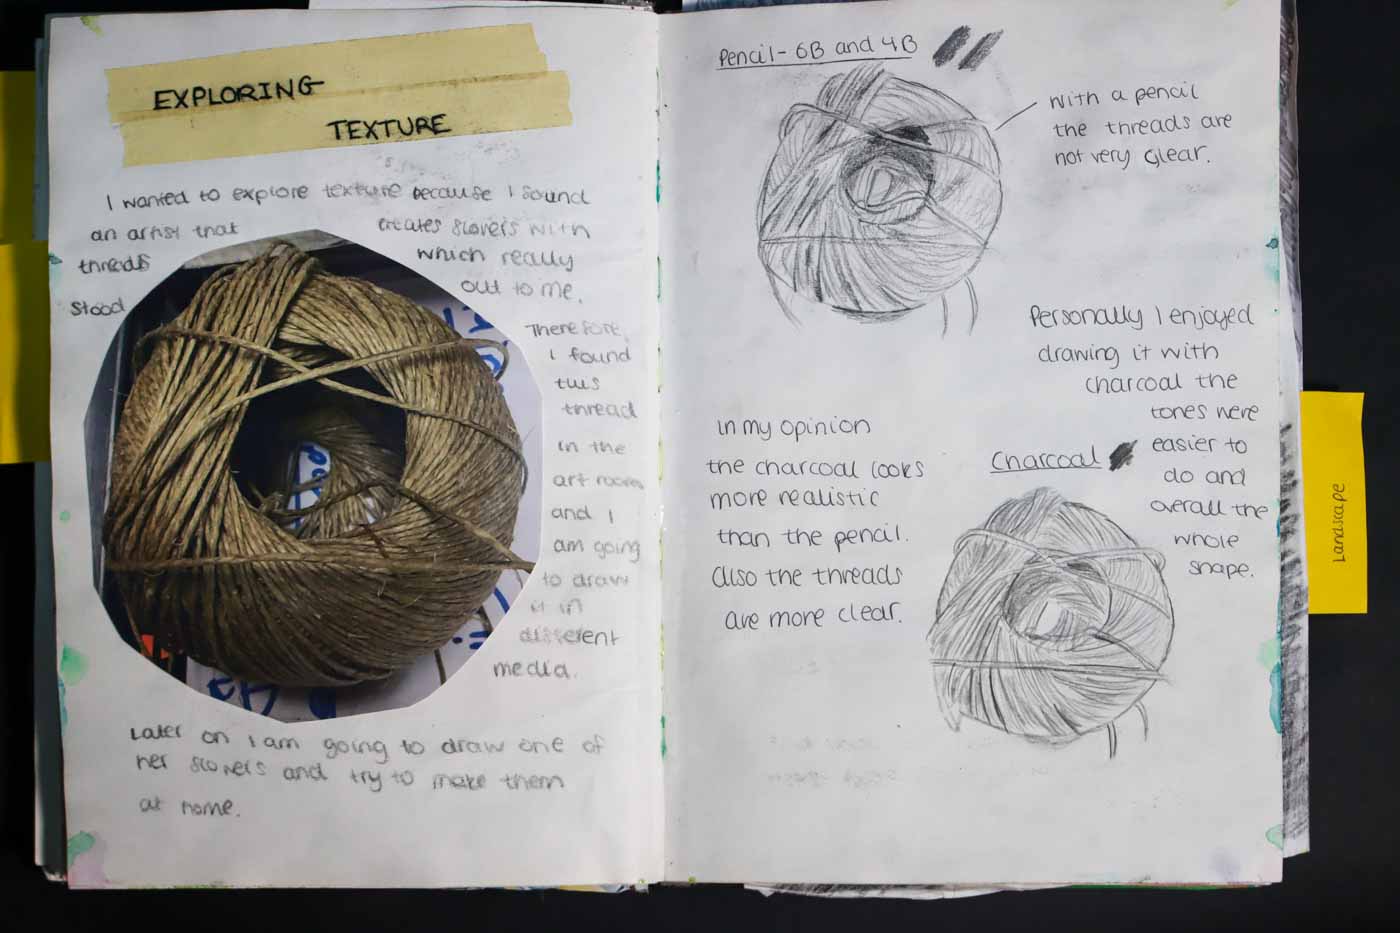 EXPLORING
TEXTURE
I wanted to explore texture because I found
an artist that creates flowers with
threads which really
stood out to me.
Therefore,
I found
this
thread
in the
art room
and I
am going
to draw
it in
different
media.
Later on I am going to draw one of
her flowers and try to make them
at home.
Pencil - 6B and 4B
With a pencil
the threads are
not very clear.
Personally I enjoyed
drawing it with
charcoal the
tones were
easier to
do and
overall the
whole
shape.
In my opinion
the charcoal looks
more realistic
than the pencil.
Also the threads
are more clear.
Charcoal
Landscape